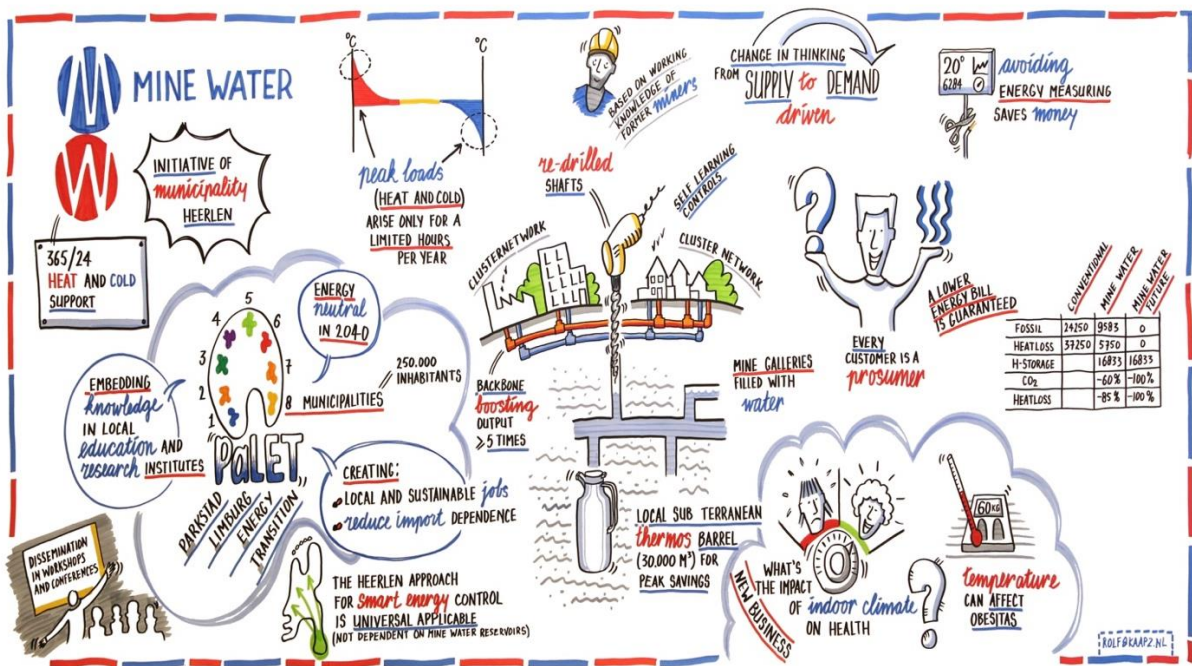 MINE WATER
INITIATIVE OF
municipality
HEERLEN
365/24
HEAT AND COLD
SUPPORT
°C
°C
peak loads
(HEAT AND COLD)
ARISE ONLY FOR A
LIMITED HOURS
PER YEAR
BASED ON WORKING
KNOWLEDGE OF
FORMER miners
CHANGE IN THINKING
FROM SUPPLY to DEMAND
driven
20°
6284
avoiding
ENERGY MEASURING
SAVES money
re-drilled
SHAFTS
SELF LEARNING
CONTROLS
CLUSTERNETWORK
CLUSTER NETWORK
BACKBONE
boosting
OUTPUT
≥5 TIMES
MINE GALLERIES
FILLED WITH
water
?
EVERY
CUSTOMER IS A
prosumer
A LOWER
ENERGY BILL
IS GUARANTEED
CONVENTIONAL
MINE WATER
MINE WATER
FUTURE
FOSSIL 24250 9583 0
HEATLOSS 37250 5750 0
H-STORAGE 16833 16833
CO₂ -60% -100%
HEATLOSS -85% -100%
ENERGY
neutral
IN 2040
1
2
3
4
5
6
7
8 MUNICIPALITIES
250.000
INHABITANTS
EMBEDDING
knowledge
IN LOCAL
education AND
research INSTITUTES
PaLET
PARKSTAD
LIMBURG
ENERGY
TRANSITION
CREATING:
LOCAL AND SUSTAINABLE jobs
reduce import DEPENDENCE
DISSEMINATION
IN WORKSHOPS
AND CONFERENCES
THE HEERLEN APPROACH
FOR smart energy CONTROL
IS UNIVERSAL APPLICABLE
(NOT DEPENDENT ON MINE WATER RESERVOIRS)
LOCAL SUB TERRANEAN
thermos BARREL
(30.000 M³) FOR
PEAK SAVINGS
NEW BUSINESS
WHAT'S
THE IMPACT
OF indoor climate
ON HEALTH
?
60KG
temperature
CAN AFFECT
OBESITAS
ROLF@KAAPZ.NL